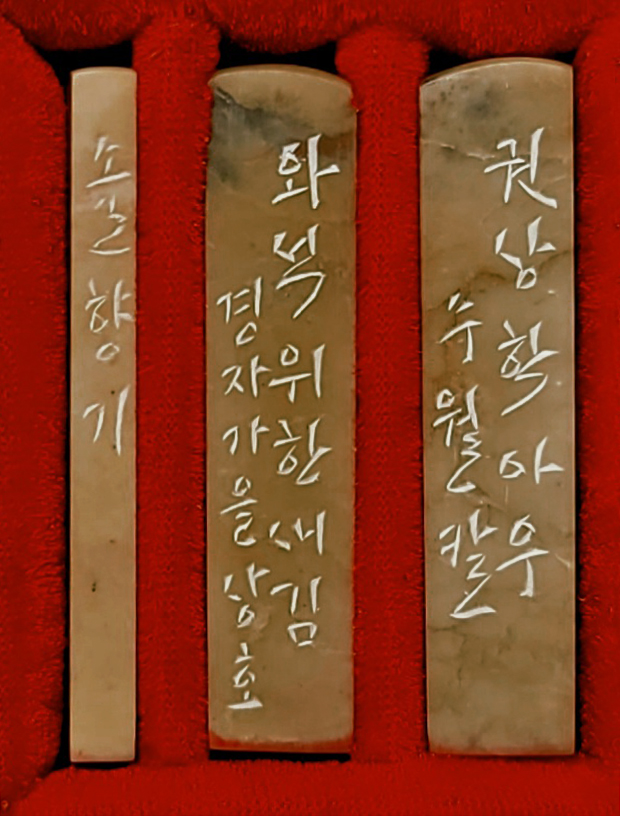 권상학아우
수월칼
와석위한새김
경자가을상호
소길향기